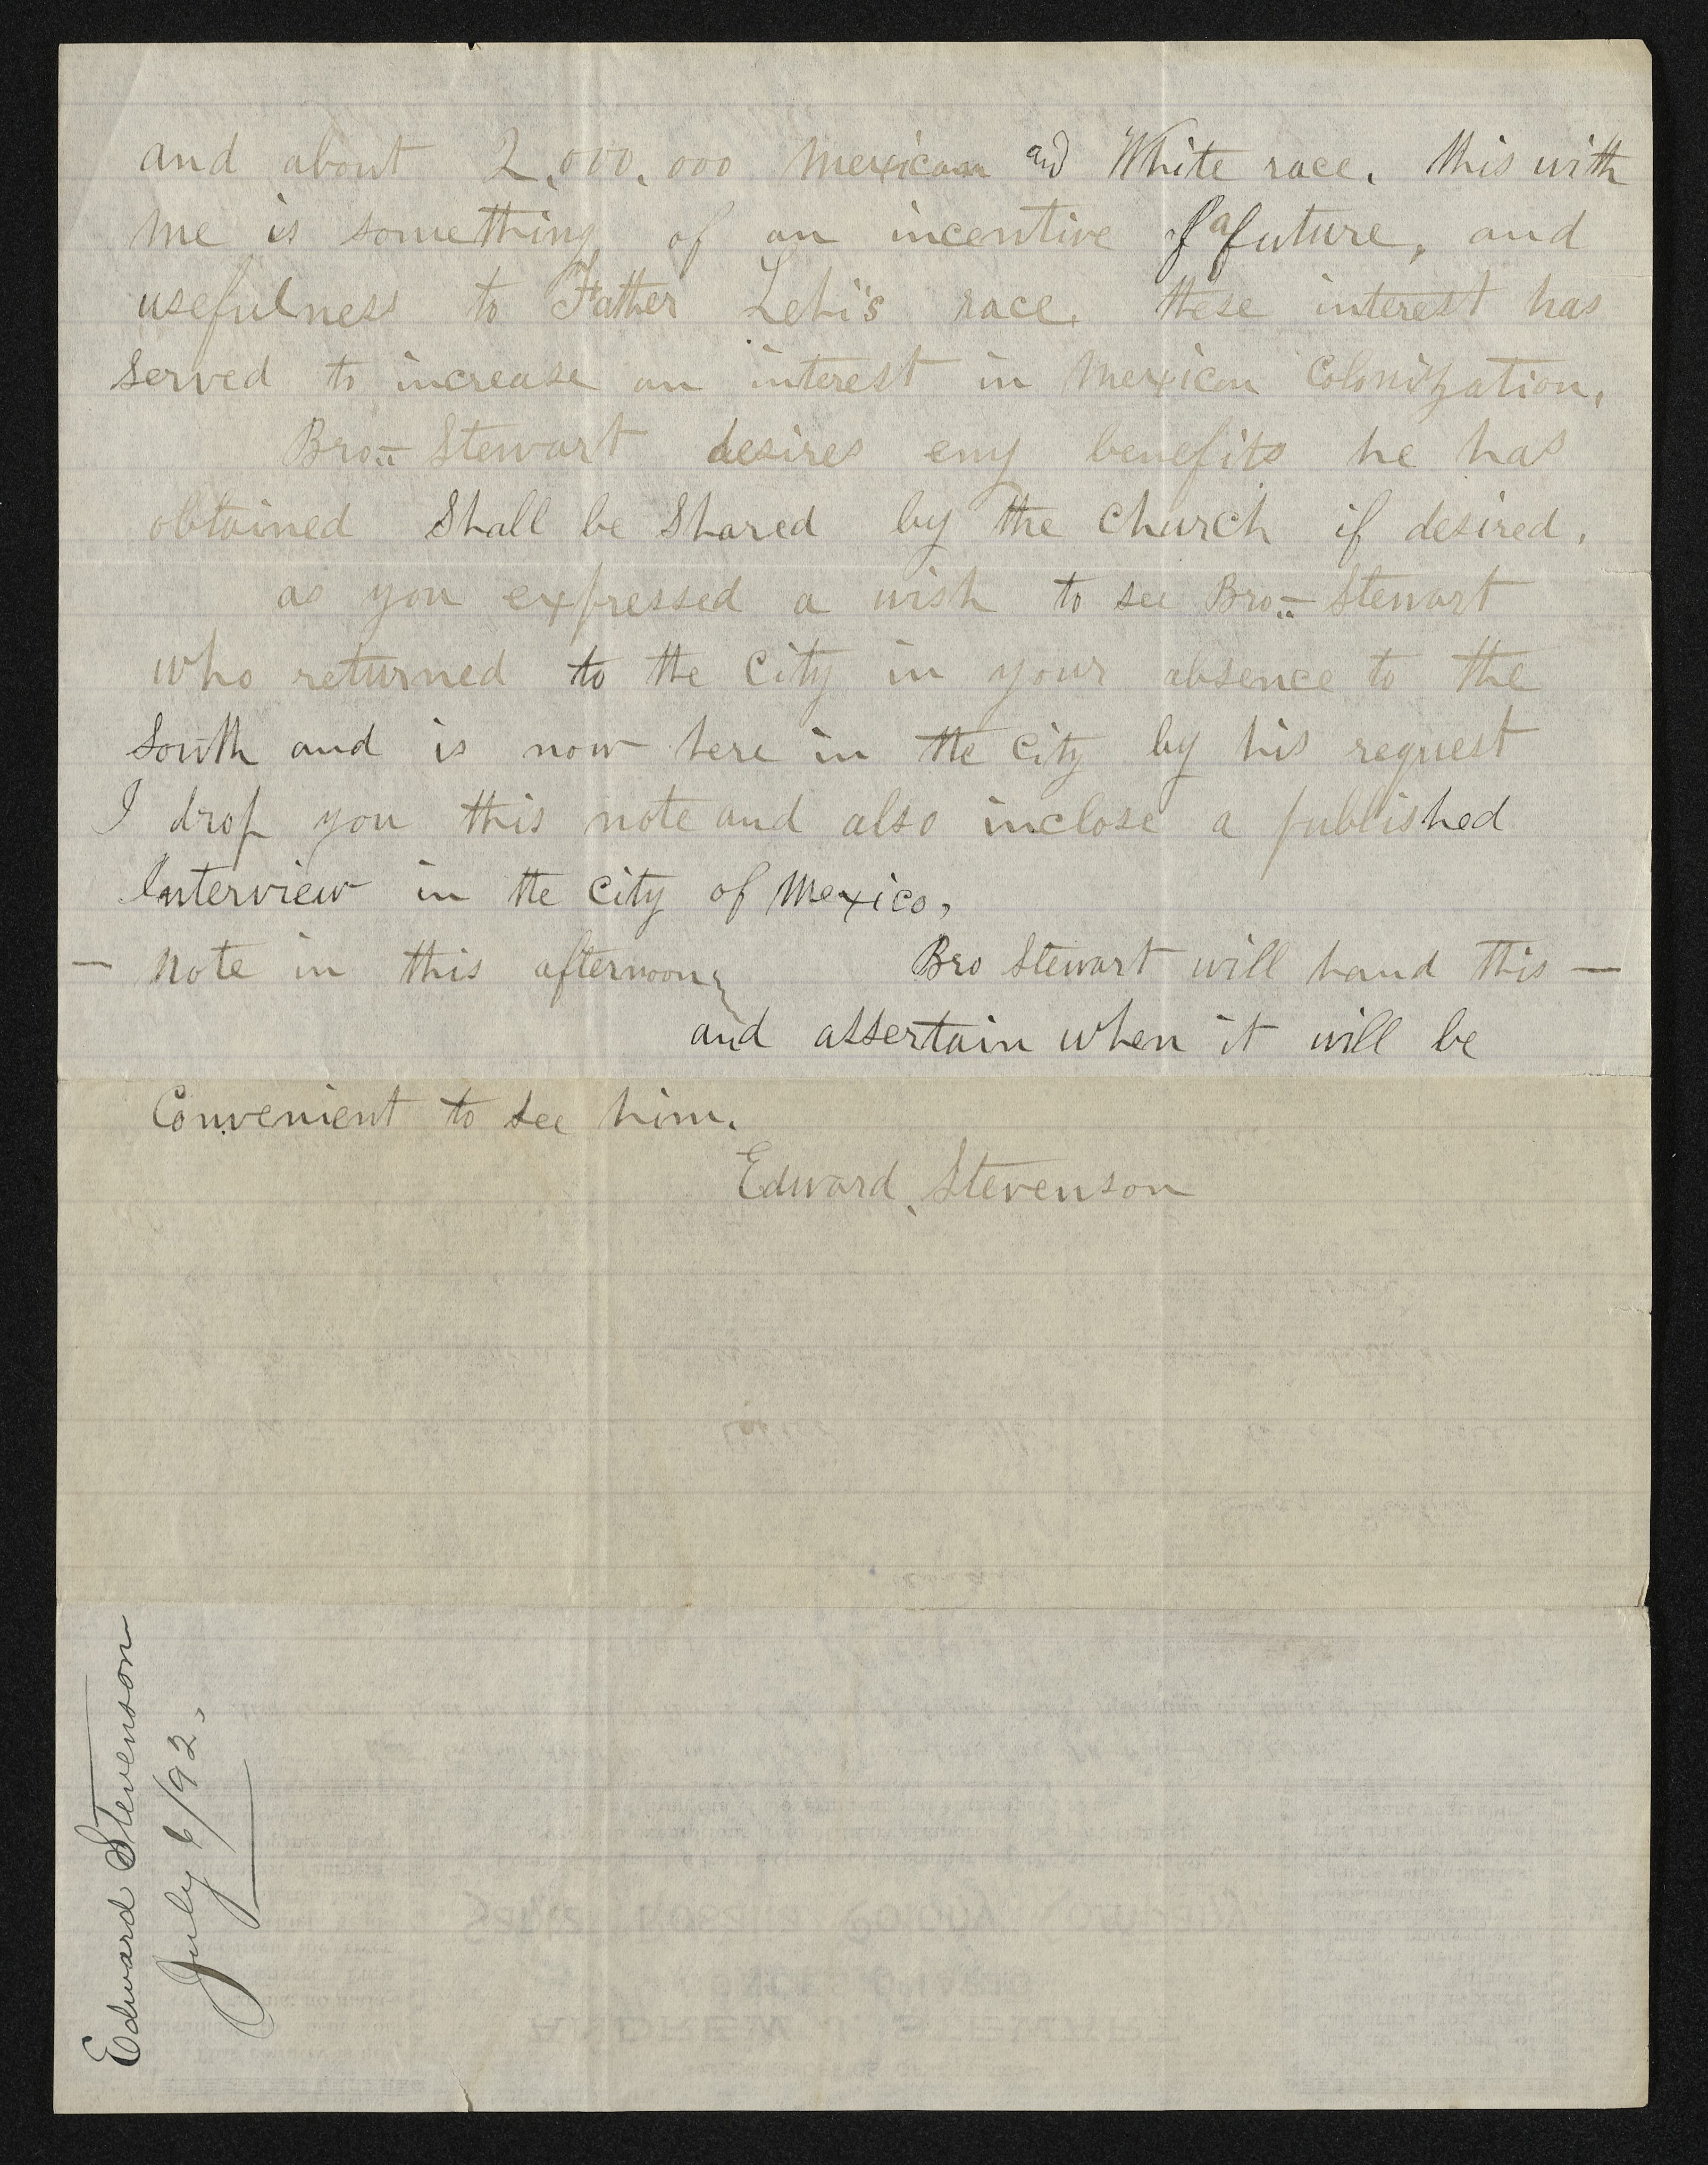 and about 2,000,000 Mexican and White race. this with
me is something of an incentive of a future, and
usefulness to Father Lehi's race. these interest has
Served to increase an interest in Mexican Colonization.
Bro= Stewart desires eny benefits he has
obtained Shall be Shared by the Church if desired.
as you expressed a wish to see Bro= Stewart
who returned to the City in your absence to the
South and is now here in the City by his request
I drop you this note and also inclose a published
Interview in the City of Mexico,
Bro Stewart will hand this —
— Note in this afternoon
and assertain when it will be
Convenient to see him.
Edward Stevenson
Edward Stevenson
July 6/92.